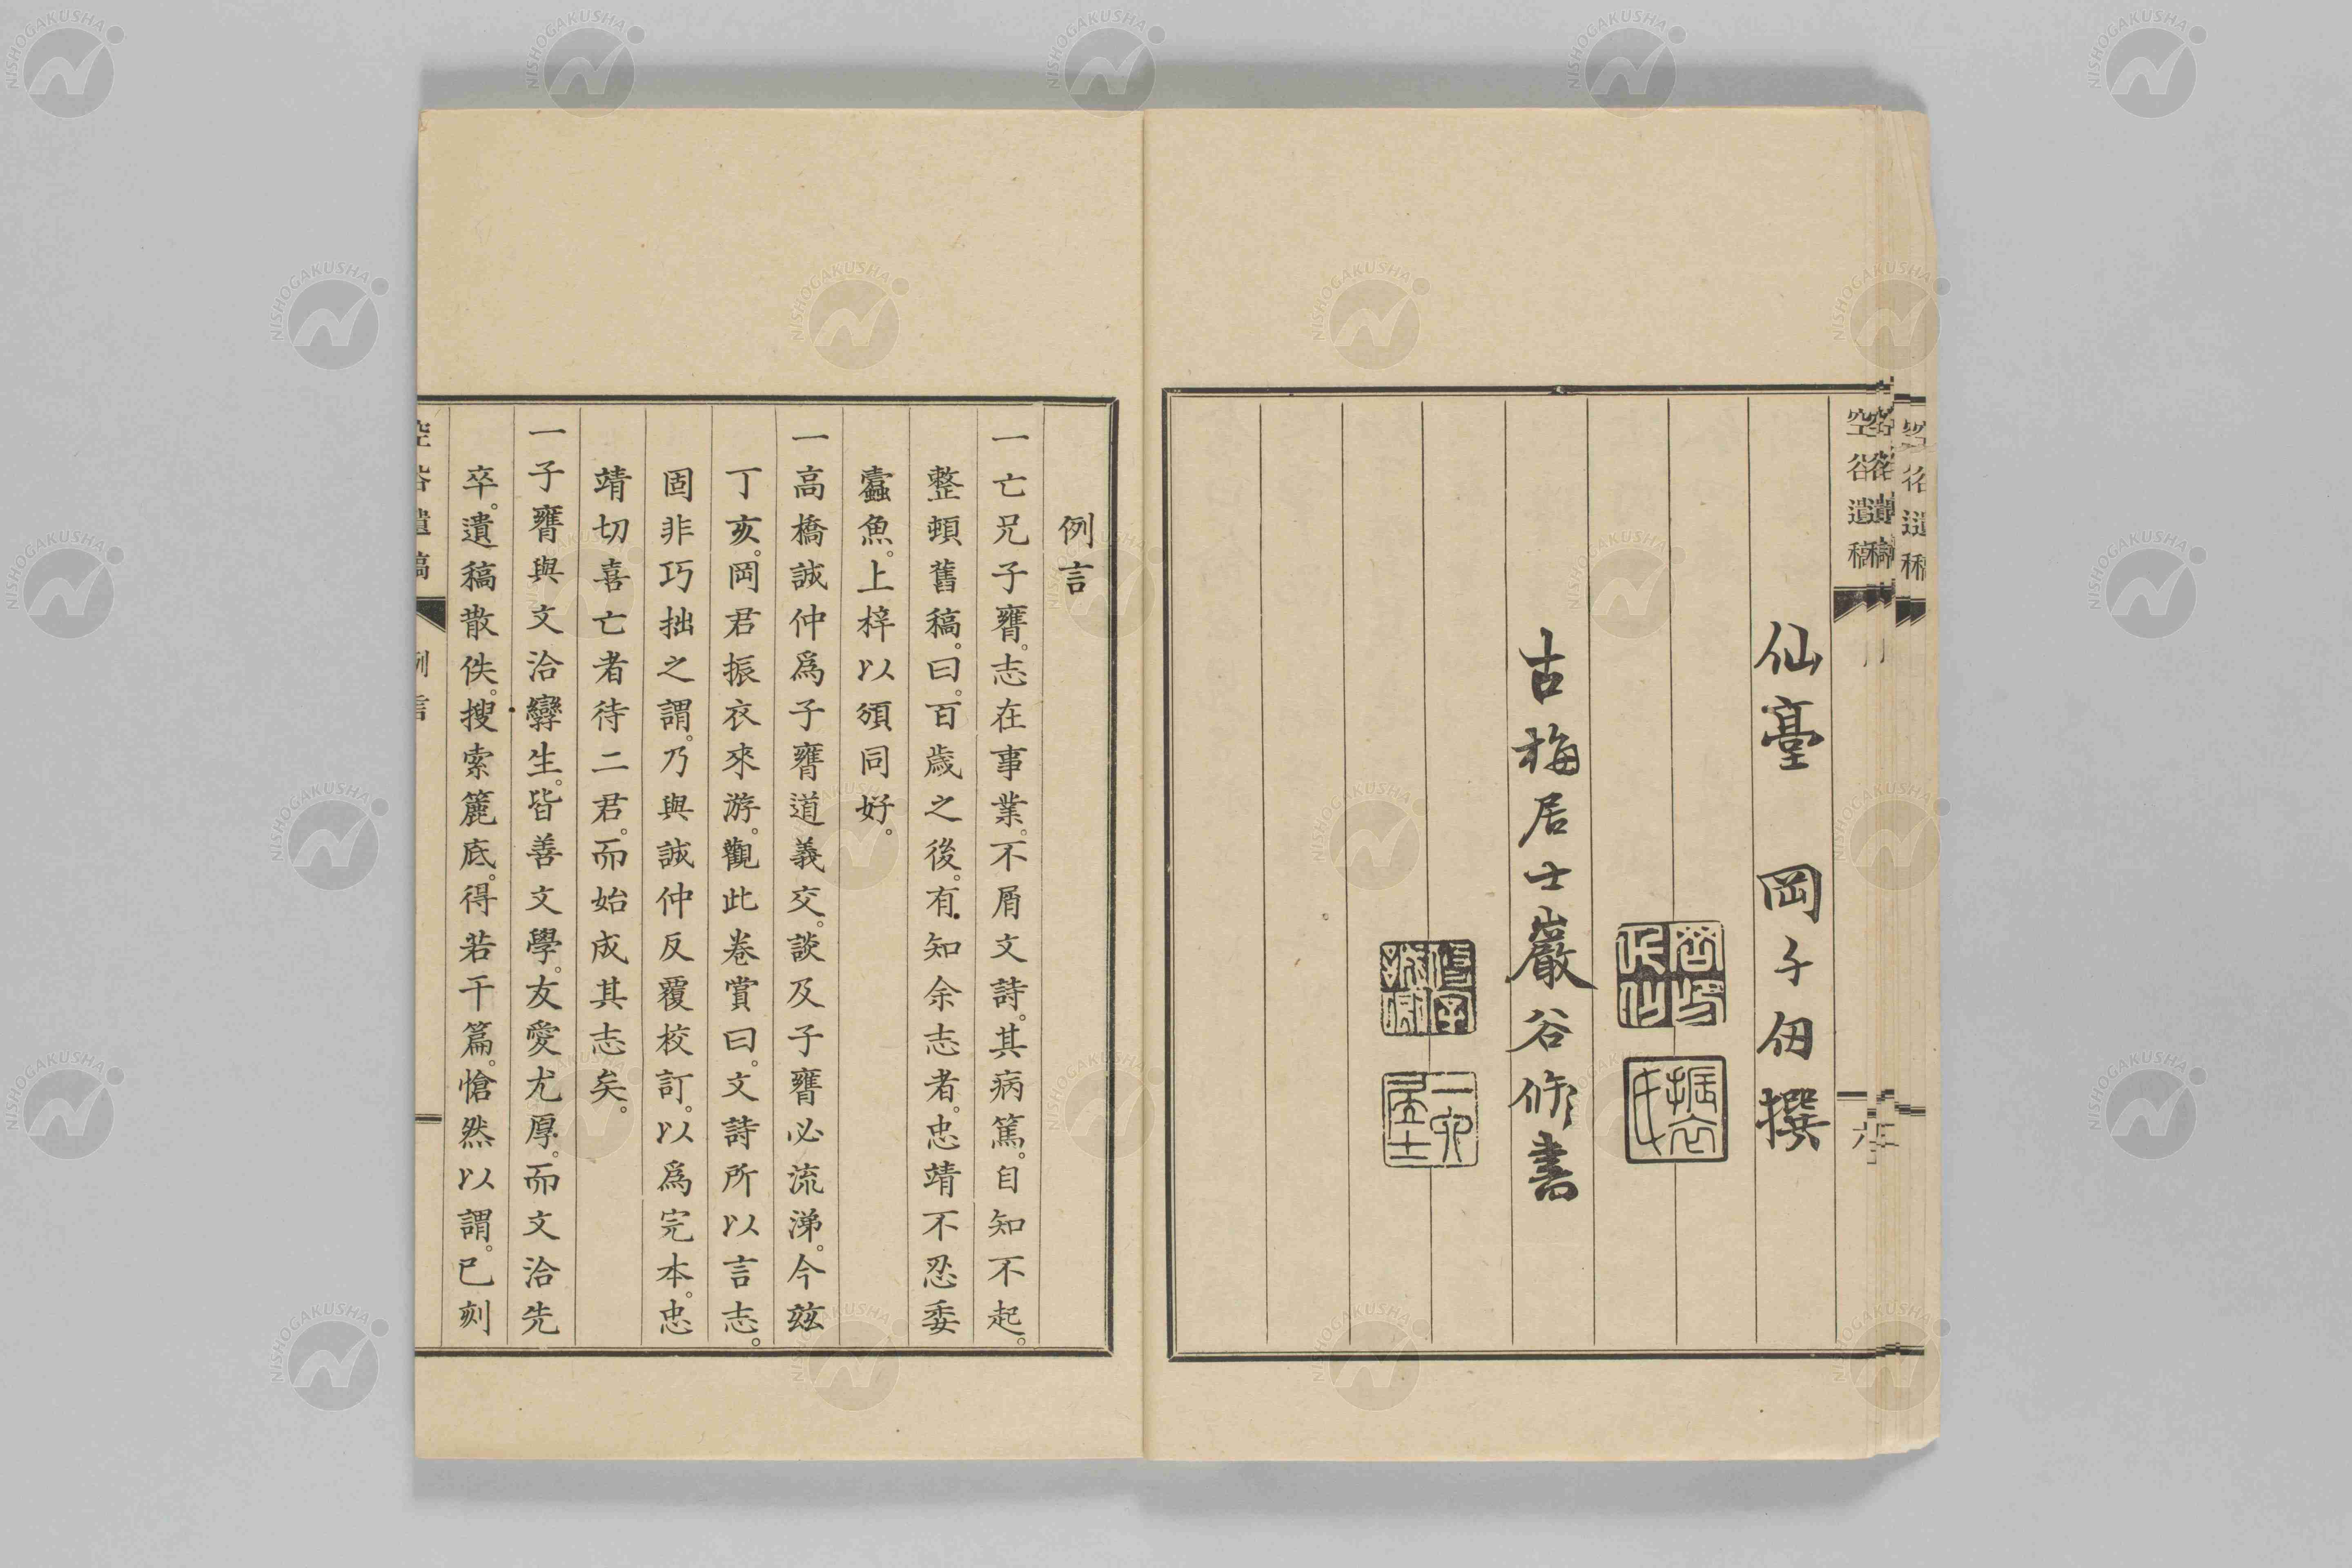 空谷遺稿
仙臺　岡子𠛬撰
古梅居士巖谷修書
例言
一亡兄子䧹。志在事業。不屑文詩。其病篤。自知不起。
整頓舊稿。曰。百歲之後。有知余志者。忠靖不忍委
蠹魚。上梓以頒同好。
一高橋誠仲爲子䧹道義交。談及子䧹必流涕。今玆
丁亥。岡君振衣來游。觀此卷賞曰。文詩所以言志。
固非巧拙之謂。乃與誠仲反覆校訂。以爲完本。忠
靖切喜亡者待二君。而始成其志矣。
一子䧹與文洽孿生。皆善文學。友愛尤厚。而文洽先
卒。遺稿散佚。搜索簏底。得若干篇。愴然以謂。已刻
空谷遺稿
例言
NISHOGAKUSHA